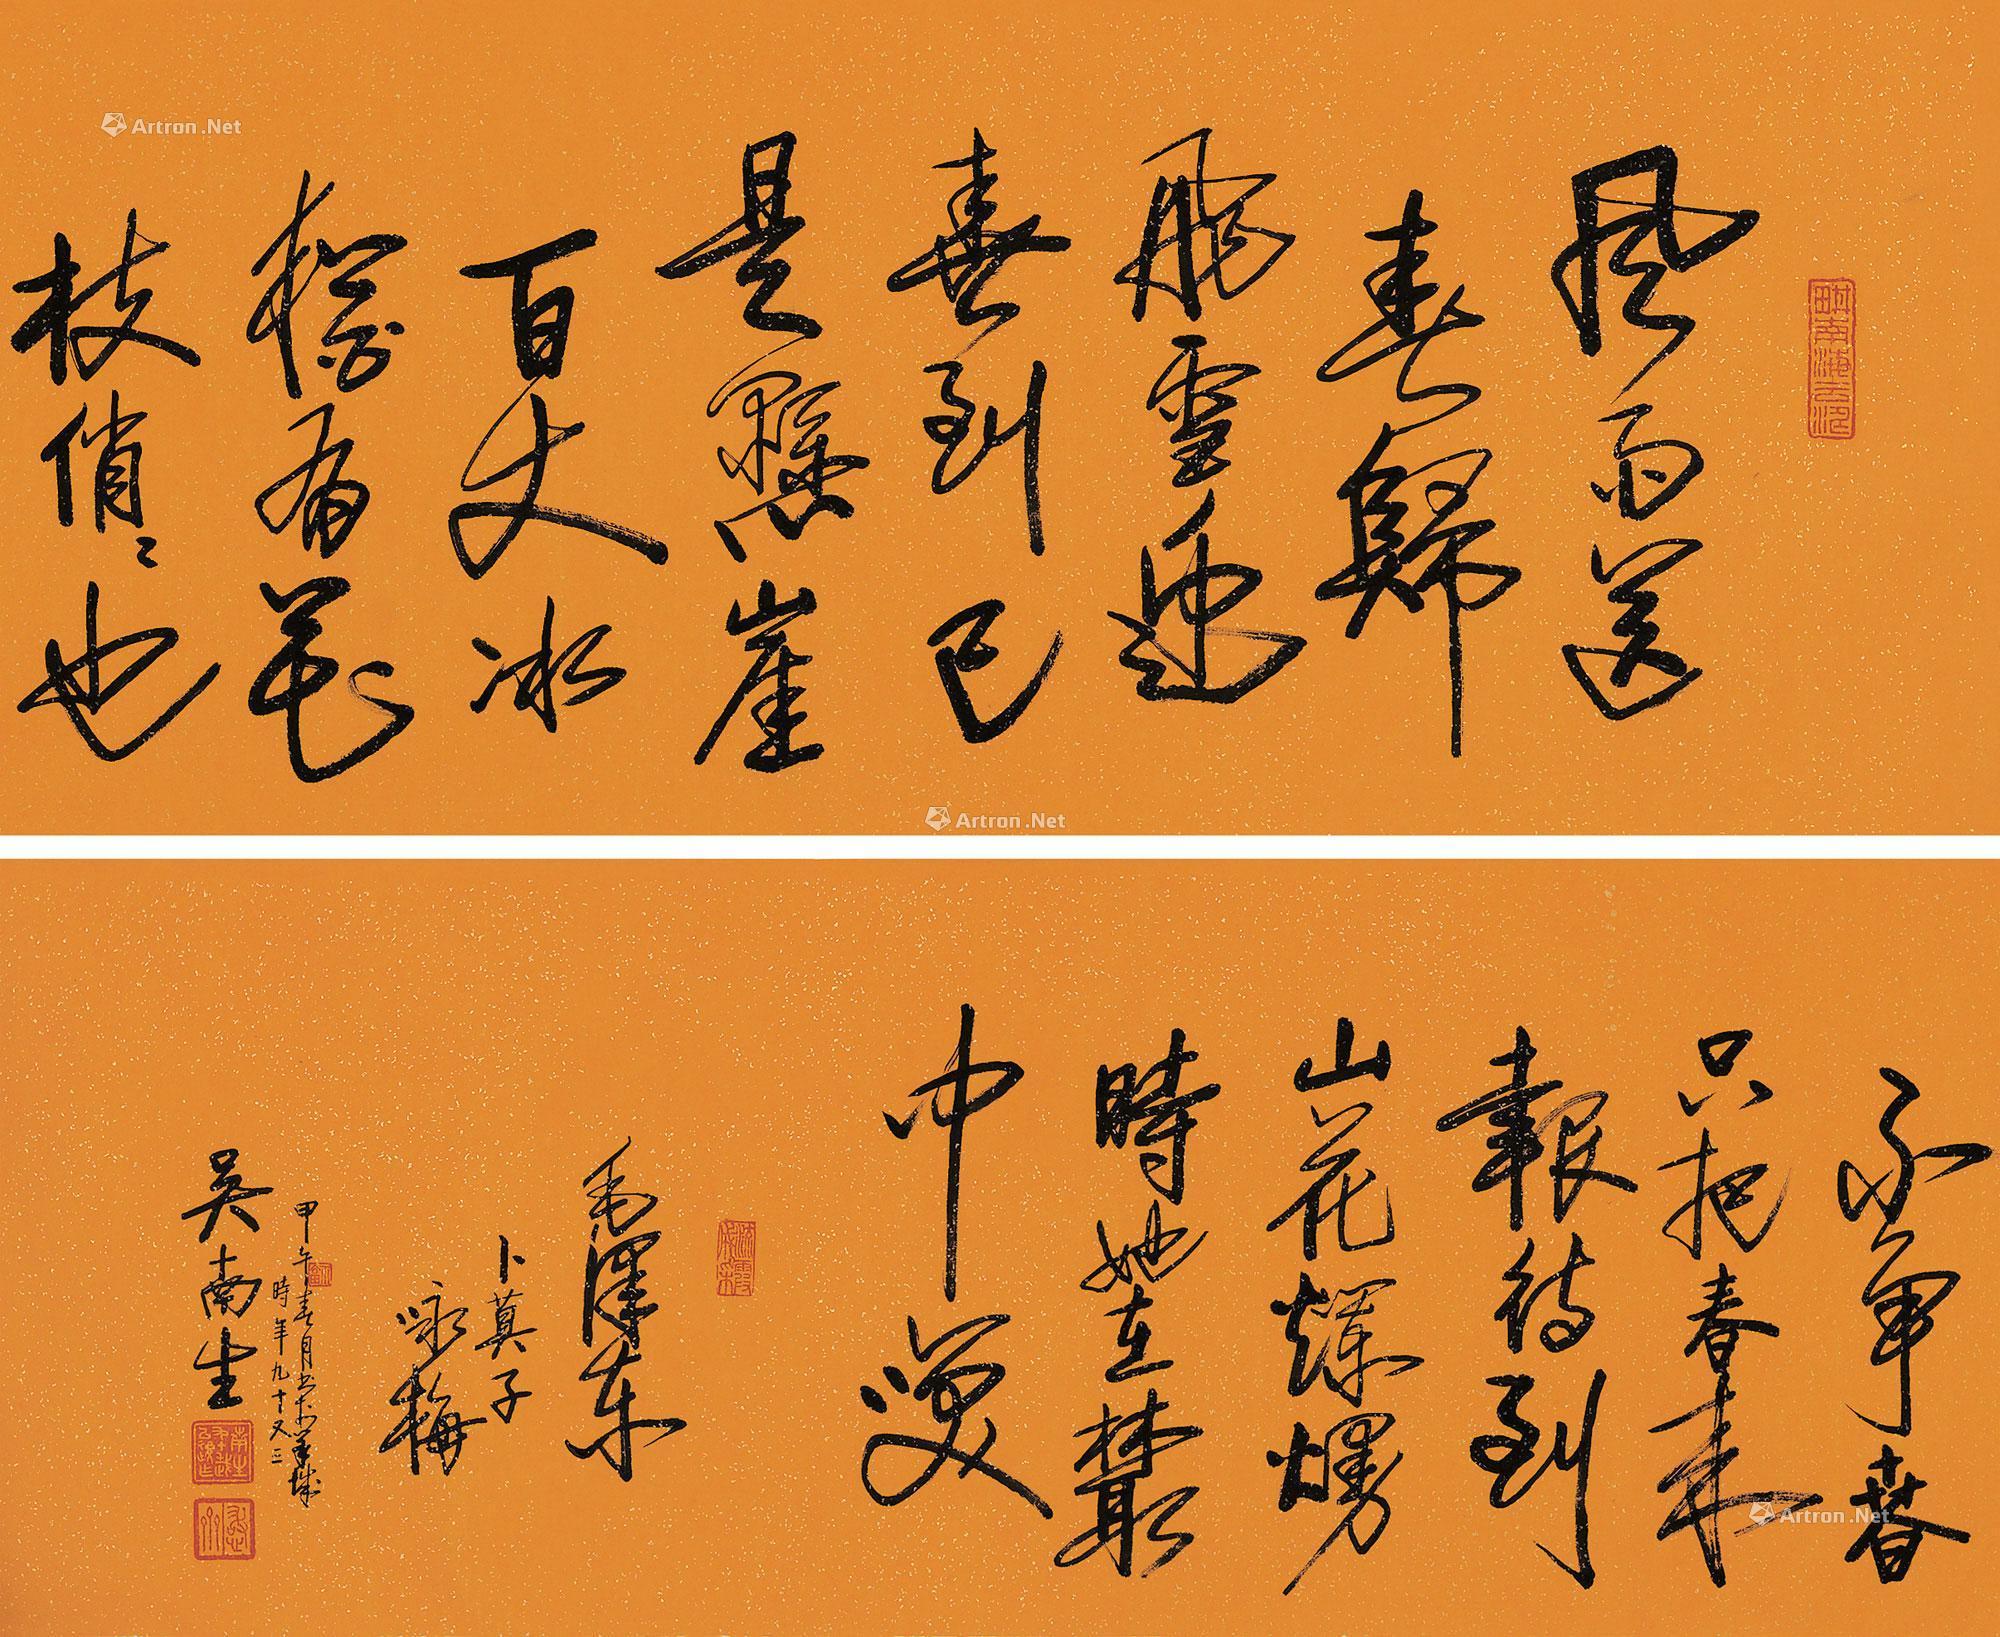 风雨送
春歸
飛雪迎
春到已
是懸崖
百丈冰
猶有花
枝俏〻也
不争春
只把春来
報待到
山花爛熳
時她在叢
中笑
毛澤东
卜算子
咏梅
甲午春月书于羊城
時年九十又三
吴南生
Artron.Net
Artron.Net
Artron.Net